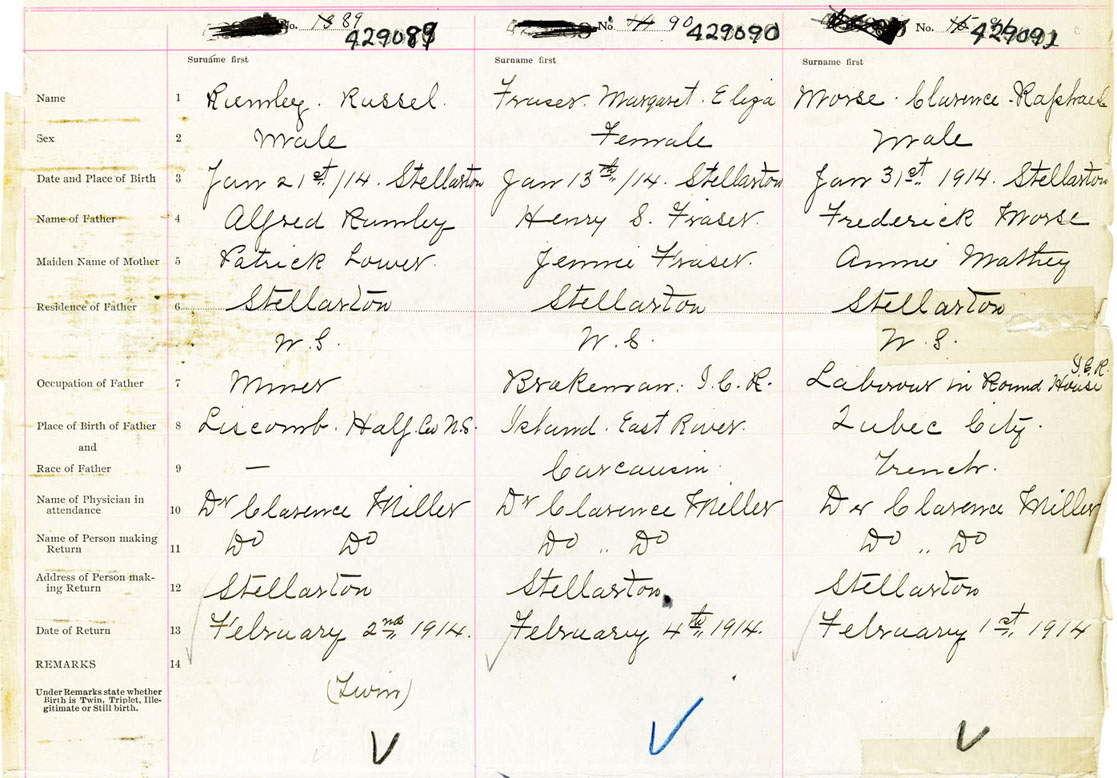 No. 13 89 429089 No. 14 90 429090 No. 15 91 429091
Surname first Surname first Surname first
Name 1 Rumley. Russel. Fraser. Margaret. Eliza Morse. Clarence. Raphael
Sex 2 Male Female Male
Date and Place of Birth 3 Jan 21st/14. Stellarton Jan 13th/14. Stellarton Jan 31st. 1914. Stellarton
Name of Father 4 Alfred Rumley Henry S. Fraser. Frederick Morse
Maiden Name of Mother 5 Patrick Lower. Jennie Fraser. Annie Mathey
Residence of Father 6 Stellarton Stellarton Stellarton
N.S. N.S. N.S.
I.C.R.
Occupation of Father 7 Miner Brakeman. I.C.R. Labour in Round House
Place of Birth of Father 8 Liscomb. Half. Co N.S. Island. East River. Qubec City.
and
Race of Father 9 — Carcausin. French.
Name of Physician in
attendance 10 Dr Clarence Miller Dr Clarence Miller Dr Clarence Miller
Name of Person making
Return 11 Do Do Do " Do Do " Do
Address of Person mak-
ing Return 12 Stellarton Stellarton. Stellarton
Date of Return 13 February 2nd, 1914. February 4th, 1914. February 1st, 1914
REMARKS 14
Under Remarks state whether
Birth is Twin, Triplet, Ille-
gitimate or Still birth.
(Twin)